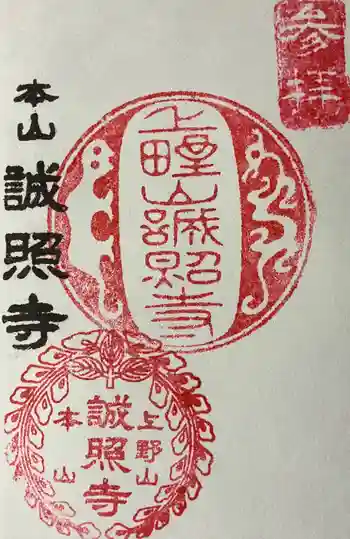 参拝
上野山誠照寺
本山
誠照寺
上野山
誠照寺
本山